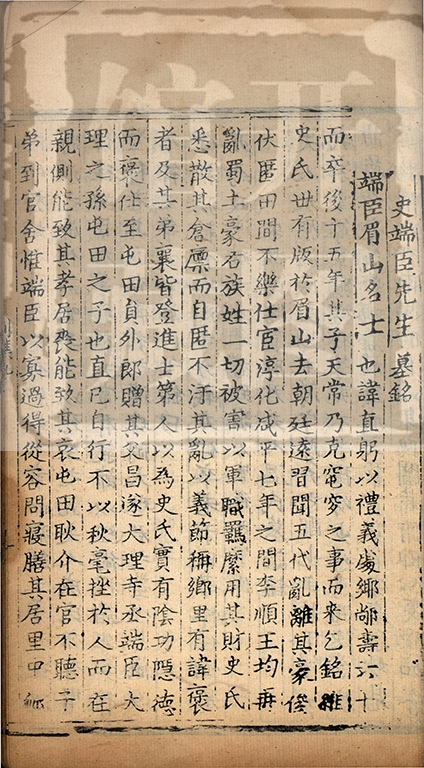 史端臣先生墓銘
端臣眉山名士也諱直躬以禮義處鄉鄰壽六十
而卒後十五年其子天常乃克窀穸之事而来乞銘惟
史氏世有版於眉山去朝廷遠習聞五代亂離其豪俊
伏匿田間不樂仕宦淳化咸平七年之間李順王均再
亂蜀土豪右族姓一切被害以軍職羈縻用其財史氏
悉散其倉廩而自匿不汙其亂以義節稱鄉里有諱褒
者及其弟襄皆登進士第人以為史氏實有陰功隱德
而褒仕至屯田員外郎贈其父昌遂大理寺丞端臣大
理之孫屯田之子也直己自行不以秋毫挫於人而在
親側能致其孝居喪能致其哀屯田耿介在官不聽子
弟到官舍惟端臣以寡過得從容問寢膳其居里中